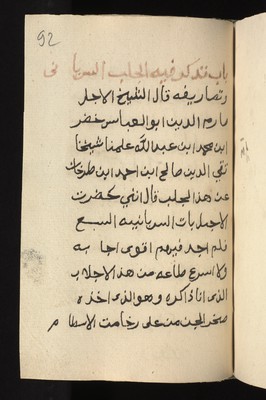 92
باب نذكر فيه الجلب السريا نى
وتصاريفه قال الشيخ الاجل
صارم الدين ابو العباس خضر
ابن محمد ابن عبد الله علمنا شيخنا
تقي الدين صالح ابن احمد ابن طرخان
عن هذا الجلب قال انني حضرت
الاجلابات السريانيه السبع
فلم اجد فيهم اقوى اجا به
ولا اسرع طاعه من هذ الاجلاب
الذى انا ذاكره وهو الذى اخذه
صخر الجن من على رخامت الاسطا م